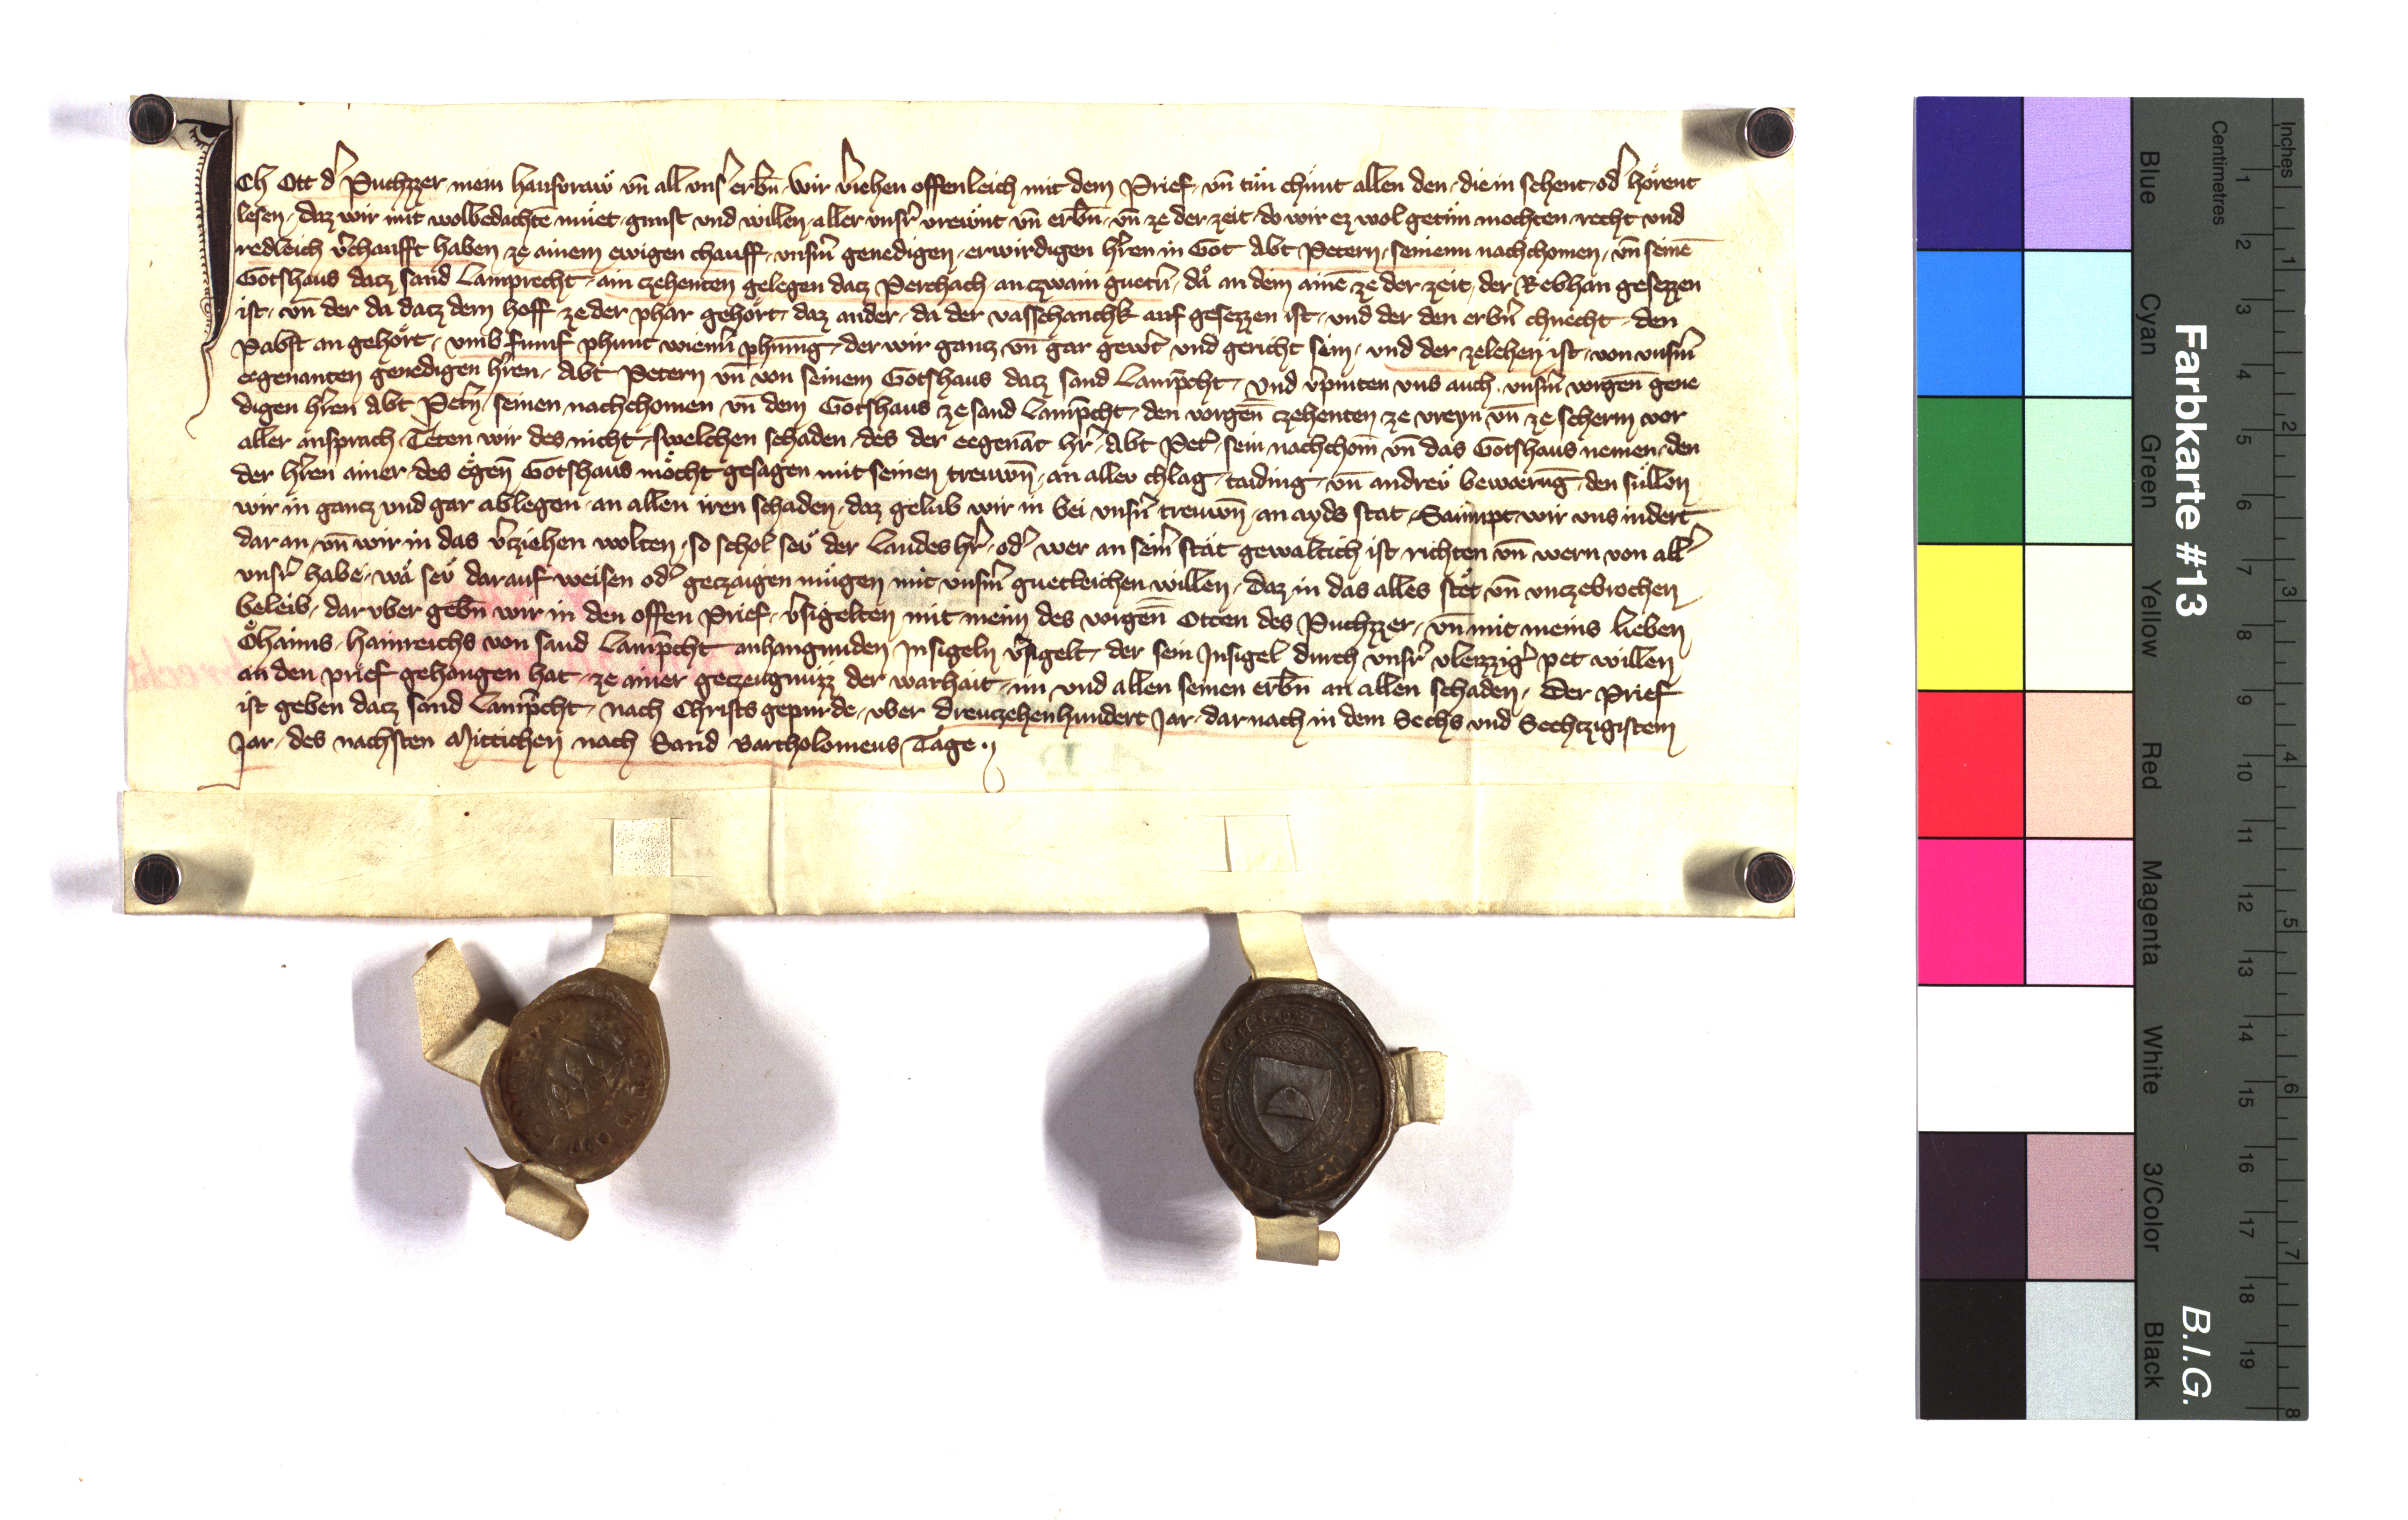 Ich Ott dˀ Puchzzer mein hausvraw vn̄ all vnsˀ erbn̄ wir vˀiehen offenleich mit dem Prief vn̄ tůn chůnt allen den die in sehent odˀ hoͤrent
lesen daz wir mit wolbedachtē muͤet gunst vnd willen aller vnsˀr vrewnt vn̄ erbn̄ vn̄ ze der zeit do wir ez wol getůn mochten recht vnd
redleich vˀchaufft haben ze ainem ewigen chauff vnsˀm genedigen erwirdigen hˀren in Got Abt Petern seinenn nachchomen vn̄ seinē
Gotshaus datz sand Lamprecht ain czehenten gelegen datz Perchach an czwain guetˀn da an dem ainē ze der zeit der Rebhan gesezzen
ist vn̄ der da datz dem hoff ze der phar gehoͤrt daz ander da der vasschanchk auf gesezzen ist vnd der den erbˀn chnecht den
Pabst an gehoͤrt vmb fumf phunt wiennˀ phning der wir gantz vn̄ gar gewˀt vnd gericht sein vnd der zelehen ist von vnsˀm
eegenanten genedigen hˀren Abt Petern vn̄ von seinem Gotshaus datz sand Lamp̄cht vnd vˀpinten vns auch vnsˀm vorgen̄ gene
digen hˀren Abt Petˀn seinen nachchomen vn̄ dem Gotshaus ze sand Lamp̄cht den vorgen̄ czehenten ze vreyn vn̄ ze scherm vor
aller ansprach Teten wir des nicht swelchen schaden des der eegenāt hˀr Abt Petˀ sein nachchom̄ vn̄ das Gotshaus nemen den
der hˀren ainer des egen̄ Gotshaus moͤcht gesagen mit seinen trewn̄ an aller chlag taiding vn̄ andreͮ bewærūg den suͤllen
wir in gantz vnd gar ablegen an allen iren schaden daz gelub wir in bei vnsˀn trewn̄ an ayds stat Saͤumpt wir vns indert
dar an vn̄ wir in das vˀziehen wolten so schol seͮ der Landes hˀr odˀ wer an seinˀ stat gewaltich ist richten vn̄ wern von allˀ
vnsˀr habe wa seͮ darauf weisen odˀ getzaigen muͤgen mit vnsˀm guetleichen willen daz in das alles stet vn̄ vnczebrochen
beleib dar vber gebn̄ wir in den offen Prief vˀsigelten mit meim des vorgen̄ Otten des Puchzzer vn̄ mit meins lieben
Oͤhaims hainreichs von sand Lamp̄cht anhangunden Insigeln vˀsigelt der sein Insigel durch vnsˀr vleizzigˀ pet willen
an den prief gehangen hat ze ainer getzeugnuͤzz der warhait im vnd allen seinen erbn̄ an allen schaden Der Prief
ist geben datz sand Lamp̄cht nach Christs gepurde vber dreutzehenhundert Jar dar nach in dem Sechs vnd Sechtzigistem
Jar des nachsten Mittichen nach Sand Bartholomeus Tage
Farbkarte #13
B.I.G.
Inches
Centimetres
Blue
Cyan
Green
Yellow
Red
Magenta
White
3/Color
Black
1 2 3 4 5 6 7 8 9 10 11 12 13 14 15 16 17 18 19
1 2 3 4 5 6 7 8